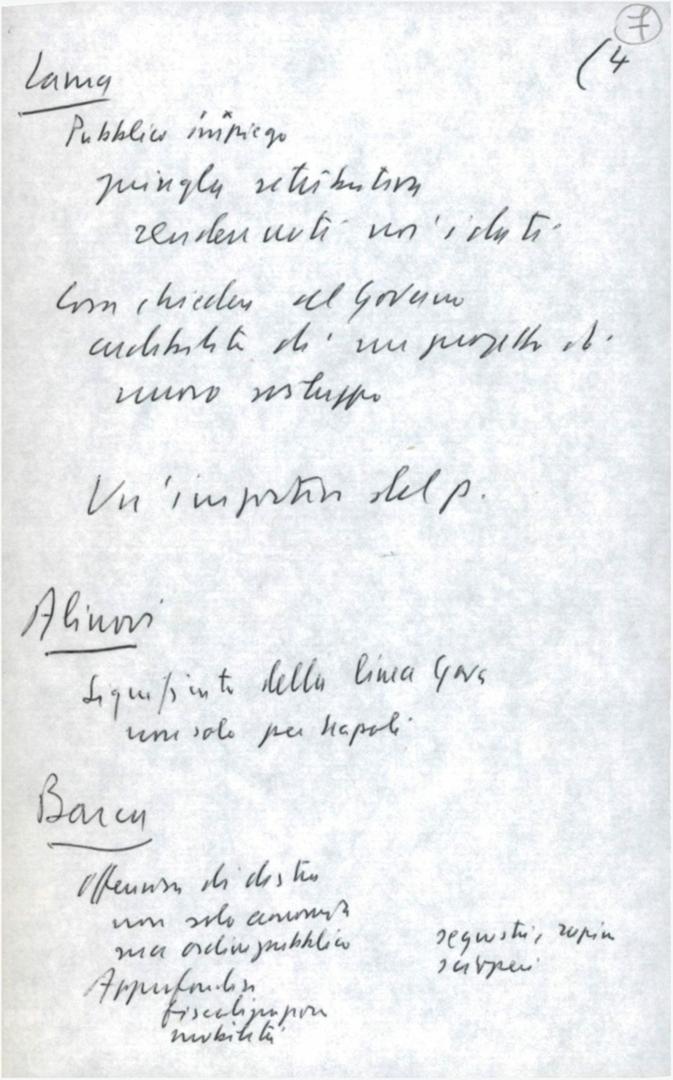 7
(4
Lama
Pubblico impiego
giungla retributiva
rendere noti tutti i dati
Cosa chiedere al Governo
credibilità di un progetto di
nuovo sviluppo
Un'iniziativa del p.
Alinovi
Significato della linea Gava
non solo per Napoli
Barca
Offensiva di destra
non solo economica
ma ordine pubblico
sequestri, rapine
scioperi
Approfondire
fiscalizzazione
mobilità